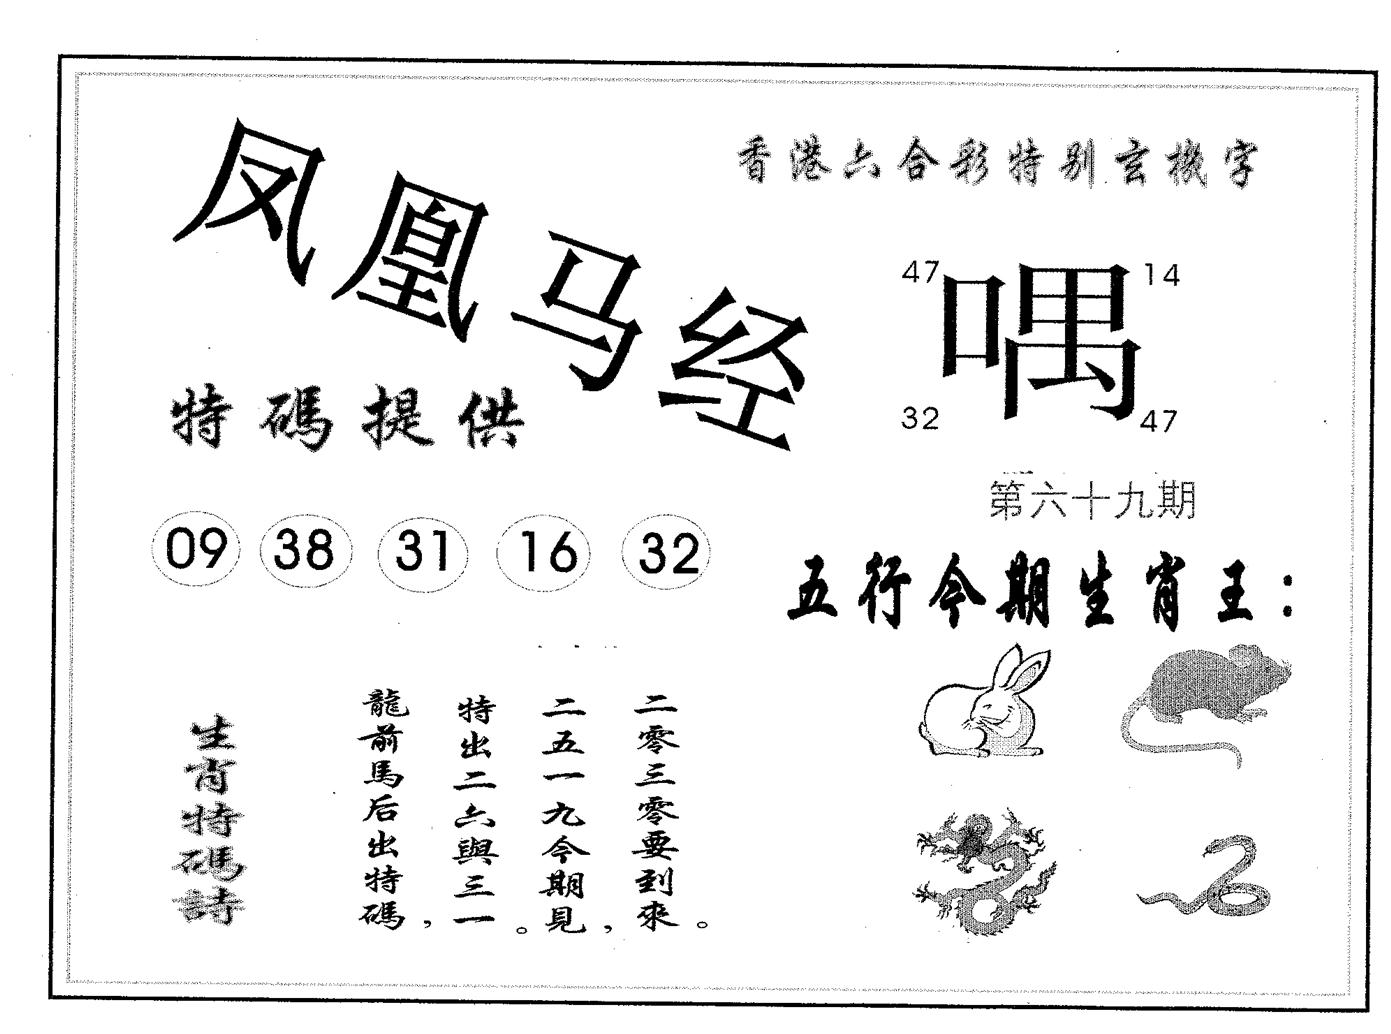 凤凰马经
香港六合彩特别玄機字
47 14
喁
32 47
特碼提供
第六十九期
09 38 31 16 32
五行今期生肖王：
生肖特碼詩
龍前馬后出特碼，
特出二六與三一。
二五一九今期見，
二零三零要到來。